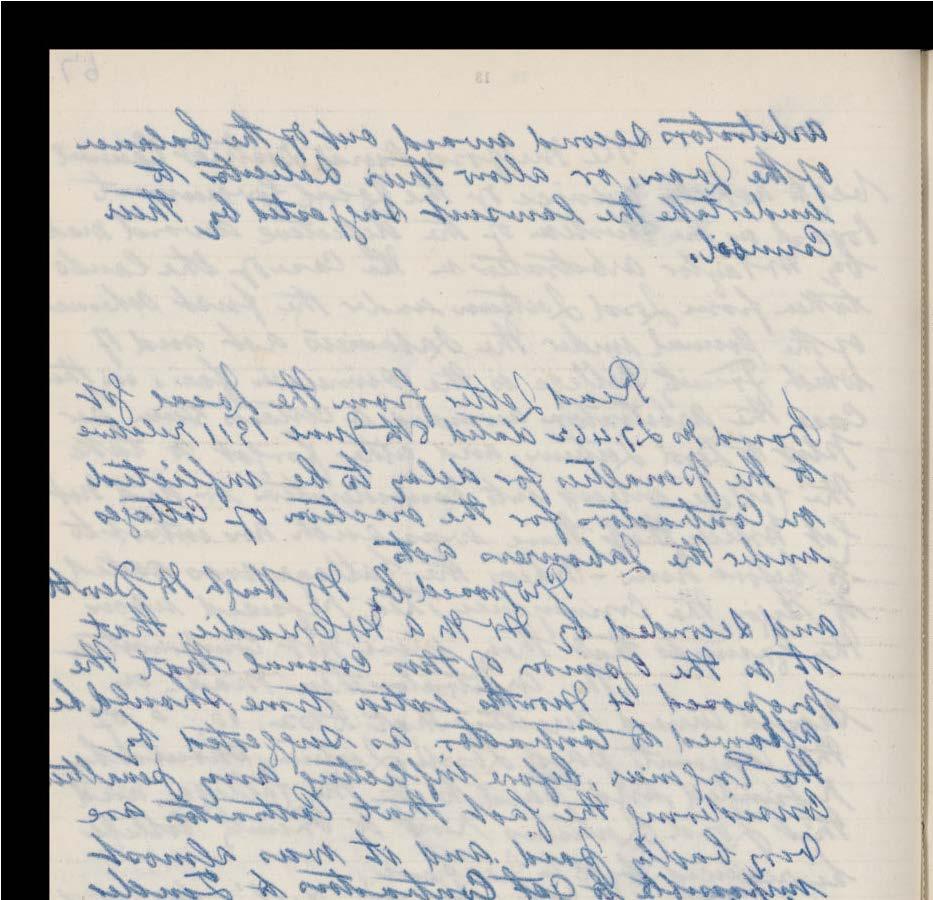 67
13
arbitrators second award out of the balance
of the Loan, or allow their Solicitor to
undertake the lawsuit suggested by their
Counsel.
Read Letter from the Local Gov
Board No 27.462 dated 6th June 1911 relative
to the penalties for delay to be inflicted
on Contractors for the erection of Cottages
under the Labourers acts
Proposed by Mr Hugh
and seconded by Mr that
it is the opinion of this Council that the
proposed 4 Months extra time should be
allowed to Contractors as suggested by
the Engineer before inflicting any penalties
Considering the fact that Contractors are
very badly paid and it was almost
impossible to get Contractors to Tender